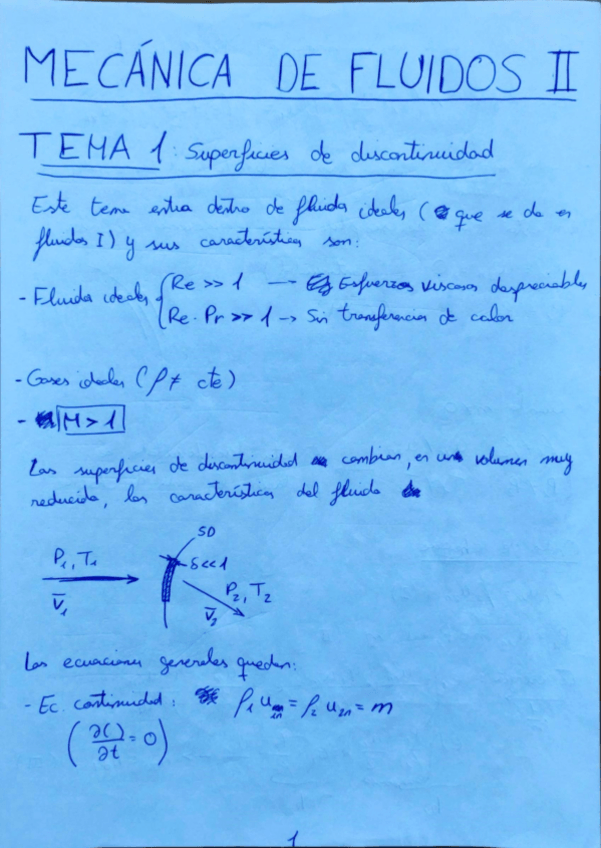 MECÁNICA DE FLUIDOS II
TEMA 1: Superficies de discontinuidad
Este tema entra dentro de fluidos ideales (que se da en
fluidos I) y sus características son:
- Fluidos ideales { Re >> 1 → Esfuerzos viscosos despreciables
Re · Pr >> 1 → Sin transferencia de calor
- Gases ideales (ρ ≠ cte)
- M > 1
Las superficies de discontinuidad cambian, en un volumen muy
reducido, las características del fluido
SD
P₁, T₁
δ << 1
P₂, T₂
v̄₁
v̄₂
Las ecuaciones generales quedan:
- Ec. continuidad: ρ₁ u₁ₙ = ρ₂ u₂ₙ = m
(∂( )/∂t = 0)
1